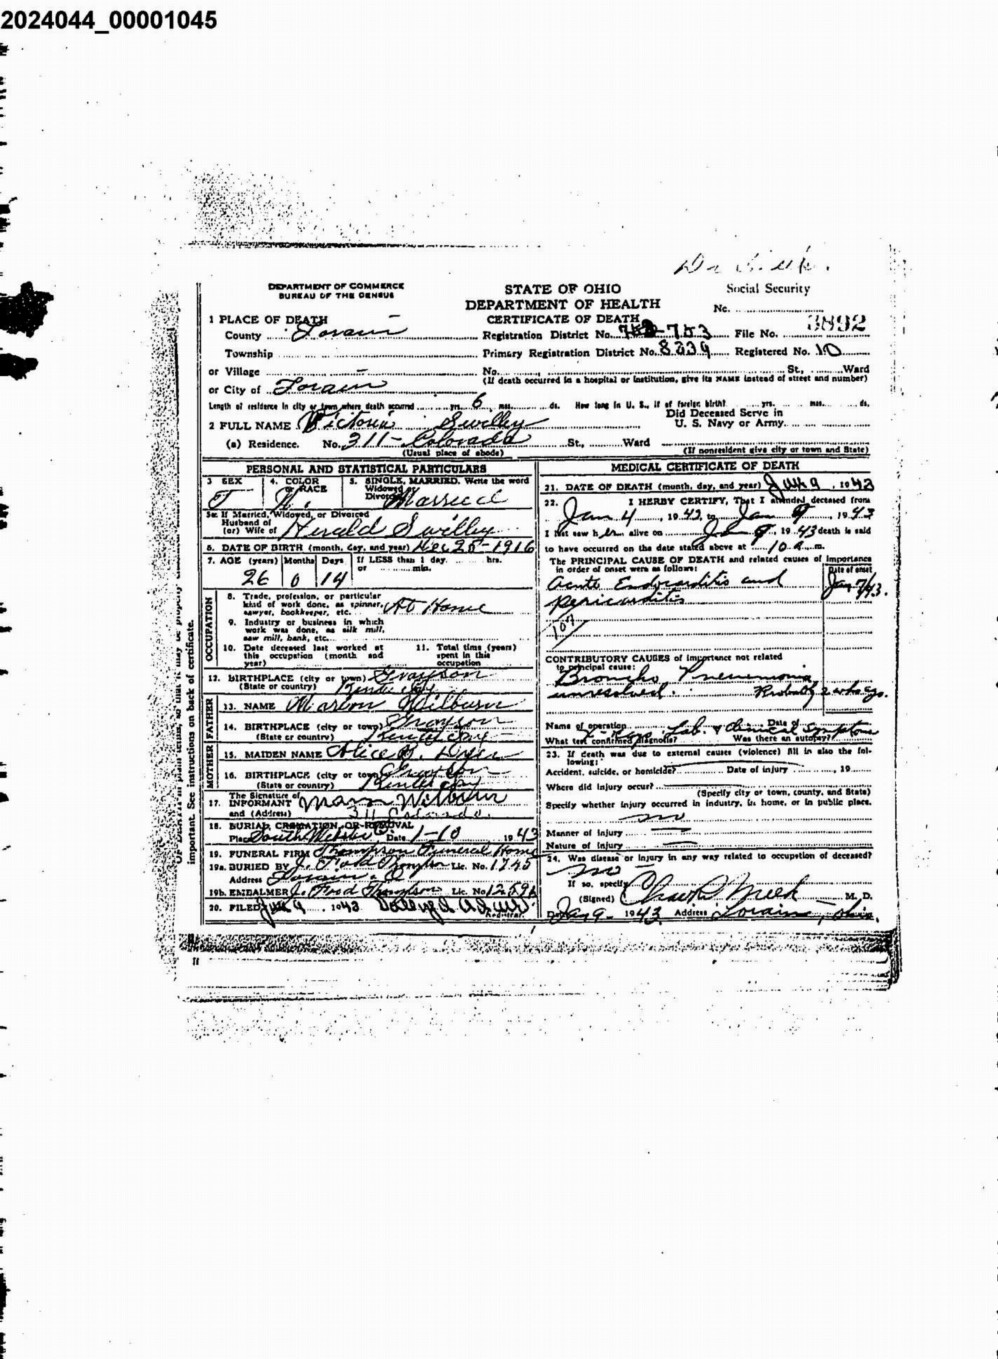 2024044_00001045
Dr Meek.
DEPARTMENT OF COMMERCE
BUREAU OF THE CENSUS
STATE OF OHIO
DEPARTMENT OF HEALTH
CERTIFICATE OF DEATH
Social Security
No.
1 PLACE OF DEATH
County Lorain
Registration District No. 753 File No. 3892
Township
Primary Registration District No. 8339 Registered No. 10
or Village
No. St., Ward
(If death occurred in a hospital or institution, give its NAME instead of street and number)
or City of Lorain
Length of residence in city or town where death occurred yrs. 6 mos. ds. How long in U. S., if of foreign birth? yrs. mos. ds.
2 FULL NAME Victoria Swilley
Did Deceased Serve in
U. S. Navy or Army
(a) Residence. No. 311 - Colorado St., Ward
(Usual place of abode) (If nonresident give city or town and State)
PERSONAL AND STATISTICAL PARTICULARS
3 SEX F
4. COLOR OR RACE W.
5. SINGLE, MARRIED. Write the word
Widowed or
Divorced Married
5a. If Married, Widowed, or Divorced
Husband of
(or) Wife of Herald Swilley
6. DATE OF BIRTH (month, day, and year) Dec 25-1916
7. AGE (years) Months Days If LESS than 1 day hrs.
or min.
26 0 14
OCCUPATION
8. Trade, profession, or particular
kind of work done, as spinner,
sawyer, bookkeeper, etc. At Home
9. Industry or business in which
work was done, as silk mill,
saw mill, bank, etc.
10. Date deceased last worked at
this occupation (month and
year)
11. Total time (years)
spent in this
occupation
12. BIRTHPLACE (city or town) Grayson
(State or country) Kentucky
FATHER
13. NAME Marion Wilburn
14. BIRTHPLACE (city or town) Grayson
(State or country) Kentucky
MOTHER
15. MAIDEN NAME Alice B. Dyer
16. BIRTHPLACE (city or town) Grayson
(State or country) Kentucky
17. The Signature of
INFORMANT Wilburn
and (Address) 311 Colorado.
18. BURIAL, CREMATION, OR REMOVAL
Place South Webster Date 1-10 1943
19. FUNERAL FIRM Thompson Funeral Home
19a. BURIED BY Lic. No. 1745
Address Lorain, O.
19b. EMBALMER Thompson Lic. No. 2596
20. FILED Jan 9, 1943
Registrar.
MEDICAL CERTIFICATE OF DEATH
21. DATE OF DEATH (month, day, and year) Jan 9, 1943
22. I HERBY CERTIFY, That I attended deceased from
Jan 4, 1943, to Jan 9, 1943
I last saw her alive on Jan 9, 1943 death is said
to have occurred on the date stated above at 10 a. m.
The PRINCIPAL CAUSE OF DEATH and related causes of importance
in order of onset were as follows:
Date of onset
Acute Endocarditis and Jan 7/43.
Pericarditis
107
CONTRIBUTORY CAUSES of importance not related
to principal cause:
Broncho Pneumonia
unresolved. Probably 2 wks ago.
Name of operation Date of
What test confirmed diagnosis? X-Ray Lab. & Clinical Symptoms Was there an autopsy?
23. If death was due to external causes (violence) fill in also the following:
Accident, suicide, or homicide? Date of injury , 19
Where did injury occur?
(Specify city or town, county, and State)
Specify whether injury occurred in industry, in home, or in public place.
no
Manner of Injury
Nature of Injury
24. Was disease or injury in any way related to occupation of deceased?
no
If so, specify
(Signed) Meek M. D.
Date Jan 9 - 1943 Address Lorain, Ohio.
important. See instructions on back of certificate.